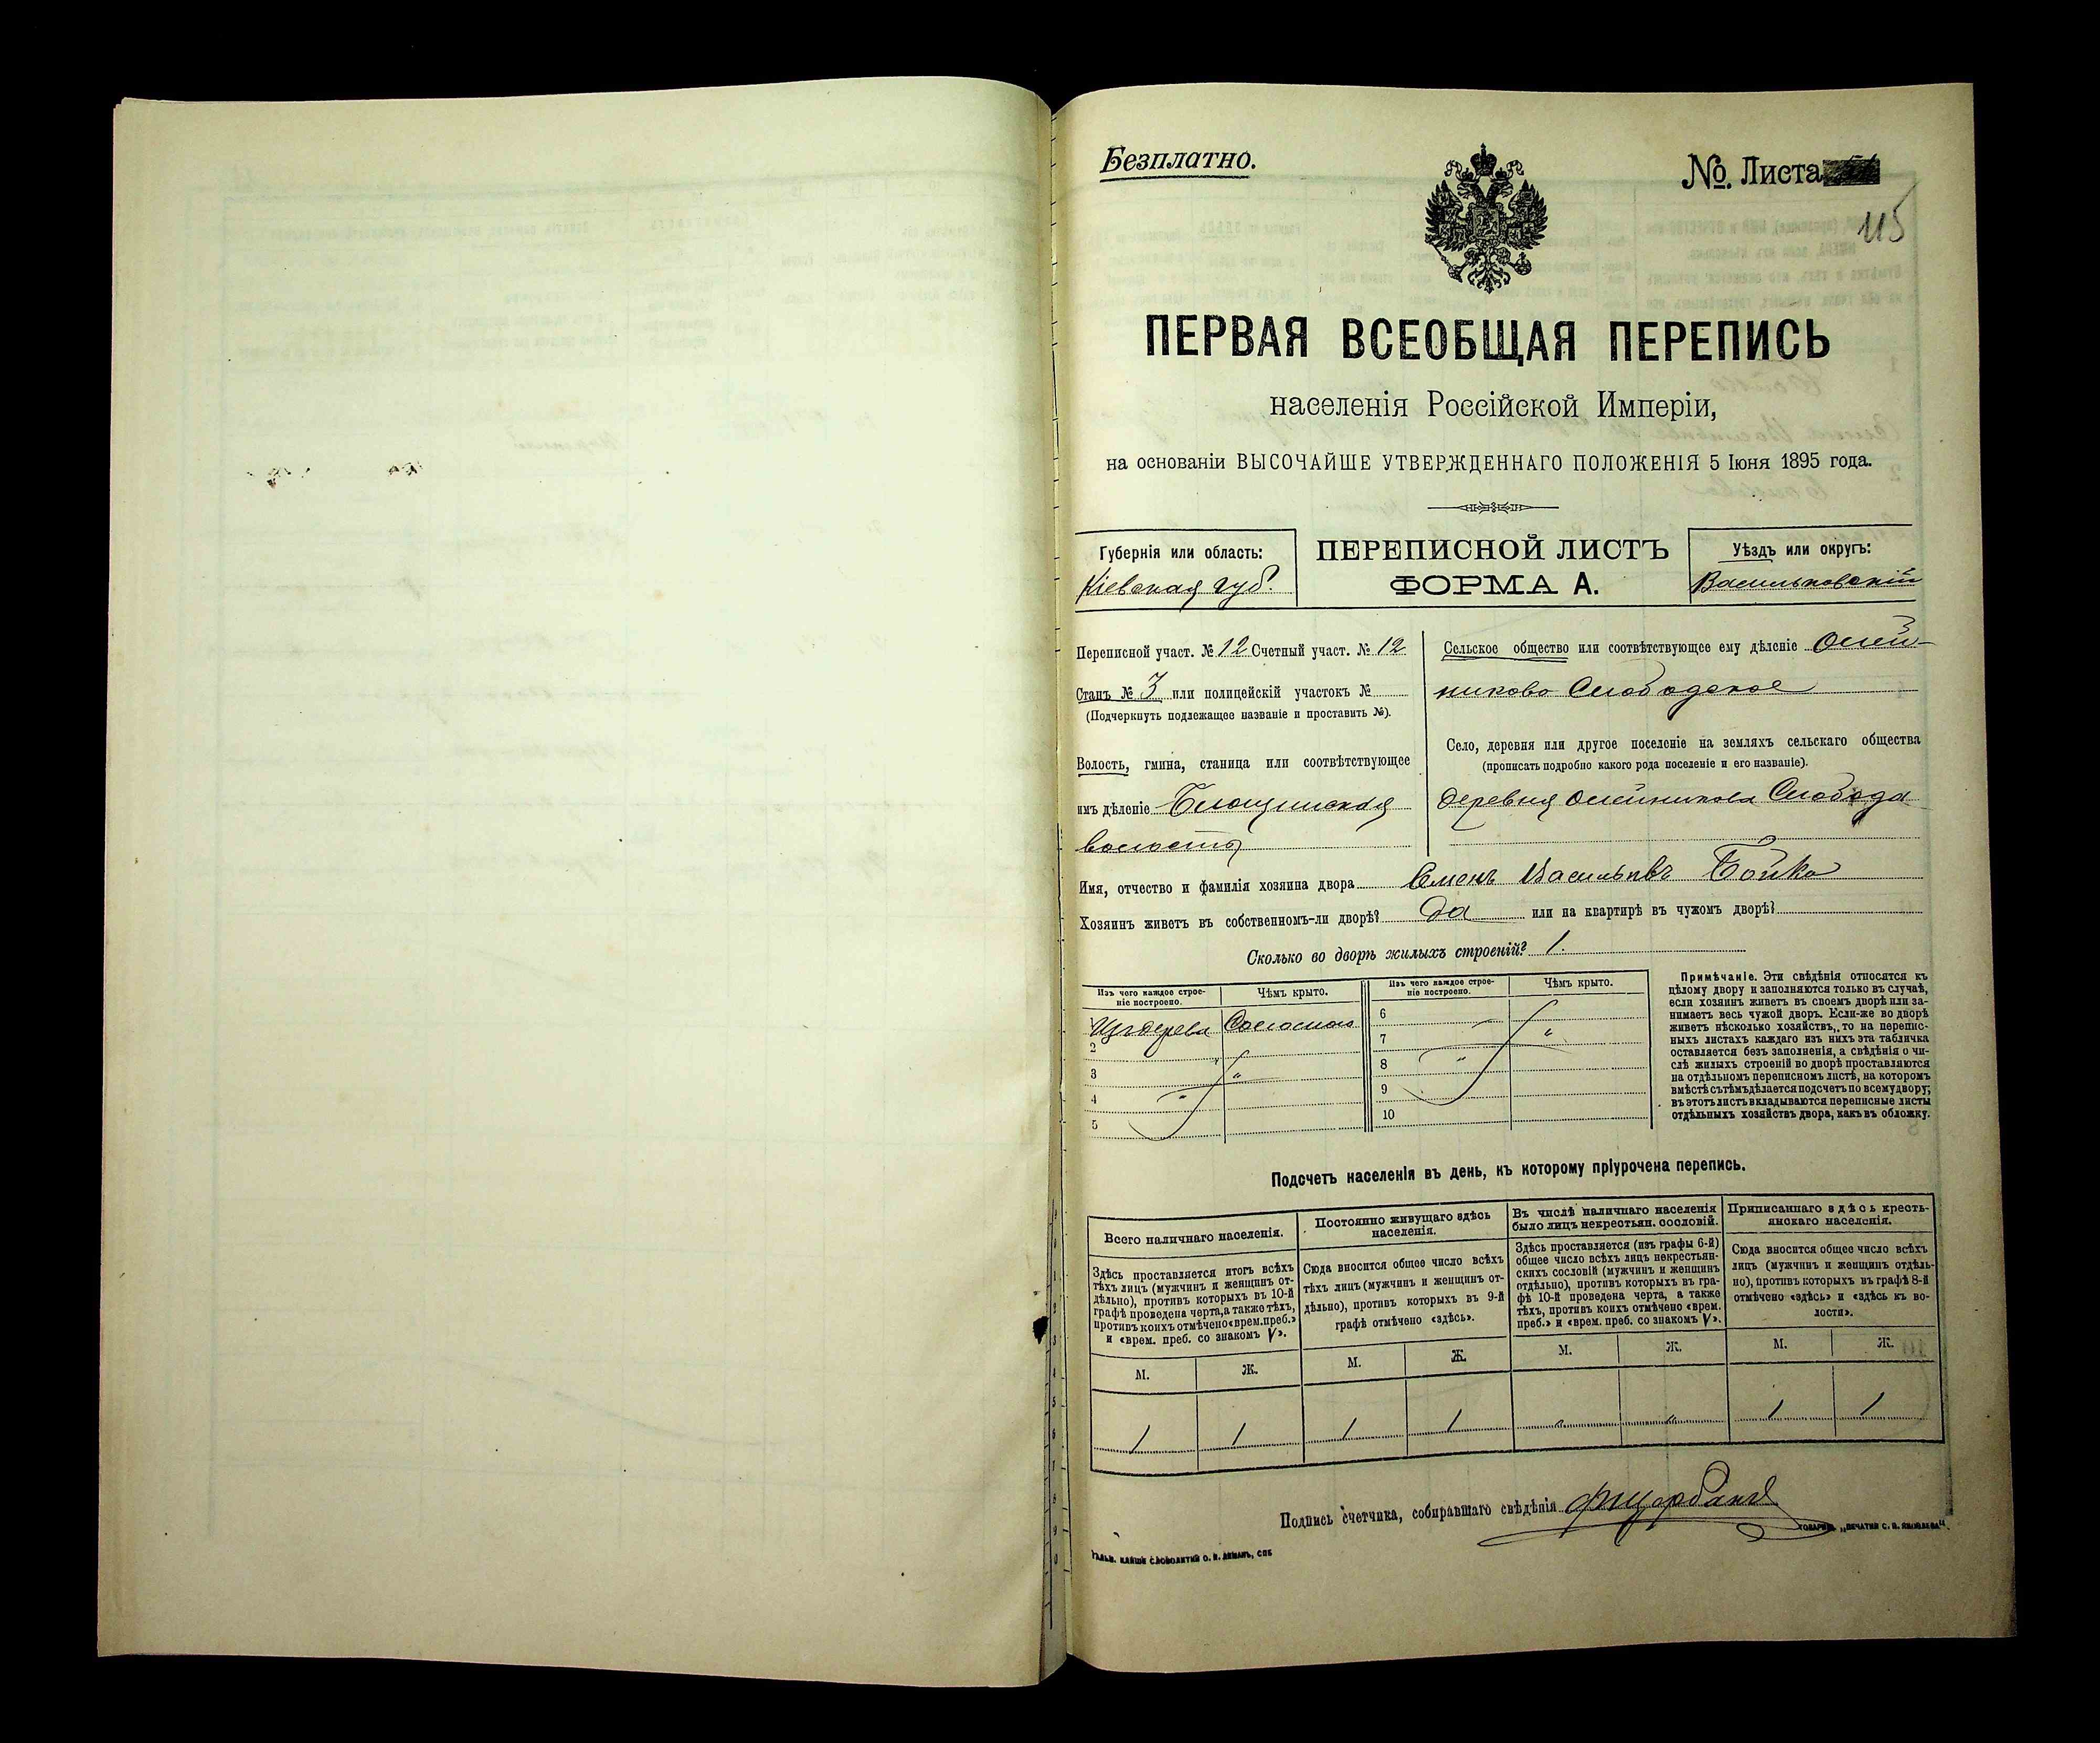 Безплатно.
№. Листа
115
ПЕРВАЯ ВСЕОБЩАЯ ПЕРЕПИСЬ
населенія Россійской Имперіи,
на основаніи ВЫСОЧАЙШЕ УТВЕРЖДЕННАГО ПОЛОЖЕНІЯ 5 Іюня 1895 года.
Губернія или область:
Кіевская губ.
ПЕРЕПИСНОЙ ЛИСТЪ
ФОРМА А.
Уѣздъ или округъ:
Васильковскій
Переписной участ. № 12 Счетный участ. № 12
Станъ № 3 или полицейскій участокъ №
(Подчеркнуть подлежащее названіе и проставить №).
Волость, гмина, станица или соотвѣтствующее
имъ дѣленіе Блощинская
волость
Сельское общество или соотвѣтствующее ему дѣленіе Олей-
никово Слободское
Село, деревня или другое поселеніе на земляхъ сельскаго общества
(прописать подробно какого рода поселеніе и его названіе).
деревня Олейникова Слобода
Имя, отчество и фамилія хозяина двора Семенъ Васильевъ Бойко
Хозяинъ живетъ въ собственномъ-ли дворѣ? да или на квартирѣ въ чужомъ дворѣ?
Сколько во дворѣ жилыхъ строеній? 1.
Изъ чего каждое строе-
ніе построено.
Чѣмъ крыто.
Изъ чего каждое строе-
ніе построено.
Чѣмъ крыто.
1 Изъ дерева Соломою
2
3 "
4 "
5
6
7 "
8 "
9
10
Примѣчаніе. Эти свѣдѣнія относятся къ
цѣлому двору и заполняются только въ случаѣ,
если хозяинъ живетъ въ своемъ дворѣ или за-
нимаетъ весь чужой дворъ. Если-же во дворѣ
живетъ нѣсколько хозяйствъ, то на перепис-
ныхъ листахъ каждаго изъ нихъ эта табличка
оставляется безъ заполненія, а свѣдѣнія о чи-
слѣ жилыхъ строеній во дворѣ проставляются
на отдѣльномъ переписномъ листѣ, на которомъ
вмѣстѣ съ тѣмъ дѣлается подсчетъ по всему двору;
въ этотъ листъ вкладываются переписные листы
отдѣльныхъ хозяйствъ двора, какъ въ обложку.
Подсчетъ населенія въ день, къ которому пріурочена перепись.
Всего наличнаго населенія.
Здѣсь проставляется итогъ всѣхъ
тѣхъ лицъ (мужчинъ и женщинъ от-
дѣльно), противъ которыхъ въ 10-й
графѣ проведена черта, а также тѣхъ,
противъ коихъ отмѣчено «врем. преб.»
и «врем. преб. со знакомъ V».
Постоянно живущаго здѣсь
населенія.
Сюда вносится общее число всѣхъ
тѣхъ лицъ (мужчинъ и женщинъ от-
дѣльно), противъ которыхъ въ 9-й
графѣ отмѣчено «здѣсь».
Въ числѣ наличнаго населенія
было лицъ некрестьян. сословій.
Здѣсь проставляется (изъ графы 6-й)
общее число всѣхъ лицъ некрестьян-
скихъ сословій (мужчинъ и женщинъ
отдѣльно), противъ которыхъ въ гра-
фѣ 10-й проведена черта, а также
тѣхъ, противъ коихъ отмѣчено «врем.
преб.» и «врем. преб. со знакомъ V».
Приписаннаго здѣсь кресть-
янскаго населенія.
Сюда вносится общее число всѣхъ
лицъ (мужчинъ и женщинъ отдѣль-
но), противъ которыхъ въ графѣ 8-й
отмѣчено «здѣсь» и «здѣсь къ во-
лости».
М. Ж. М. Ж. М. Ж. М. Ж.
1 1 1 1 " " 1 1
Подпись счетчика, собиравшаго свѣдѣнія
ГАЛЬВ. КЛИШЕ СЛОВОЛИТНИ О. И. ЛЕМАНЪ, СПБ
ТОВАРИЩ. „ПЕЧАТНЯ С. П. ЯКОВЛЕВА".